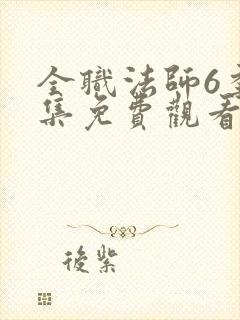 全職法師6季
集免費觀看
後紫